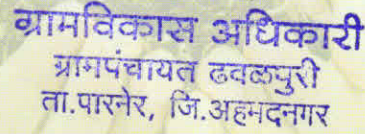 ग्रामविकास अधिकारी
ग्रामपंचायत ढवळपुरी
ता.पारनेर, जि.अहमदनगर